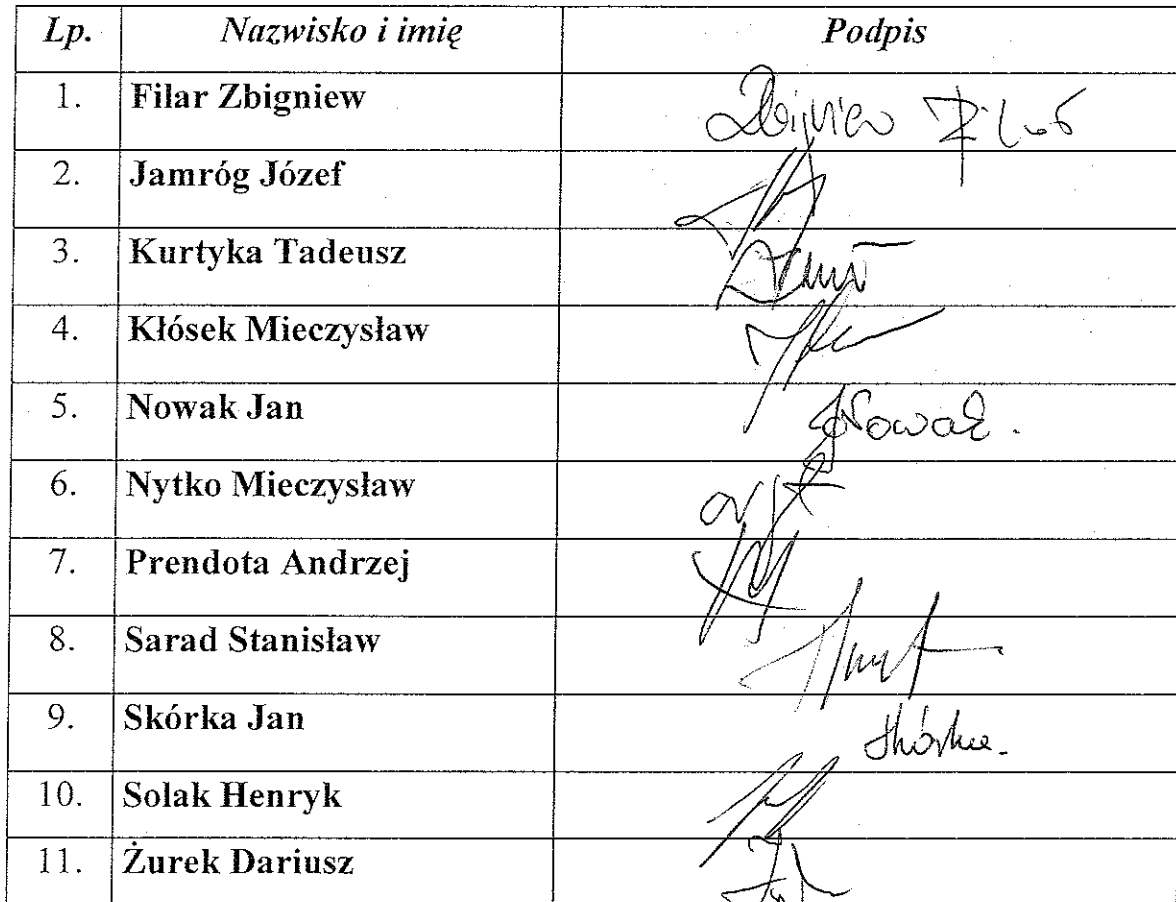 Lp. Nazwisko i imię Podpis
1. Filar Zbigniew Zbigniew Filar
2. Jamróg Józef
3. Kurtyka Tadeusz
4. Kłósek Mieczysław
5. Nowak Jan JNowak.
6. Nytko Mieczysław
7. Prendota Andrzej
8. Sarad Stanisław
9. Skórka Jan Skórka.
10. Solak Henryk
11. Żurek Dariusz